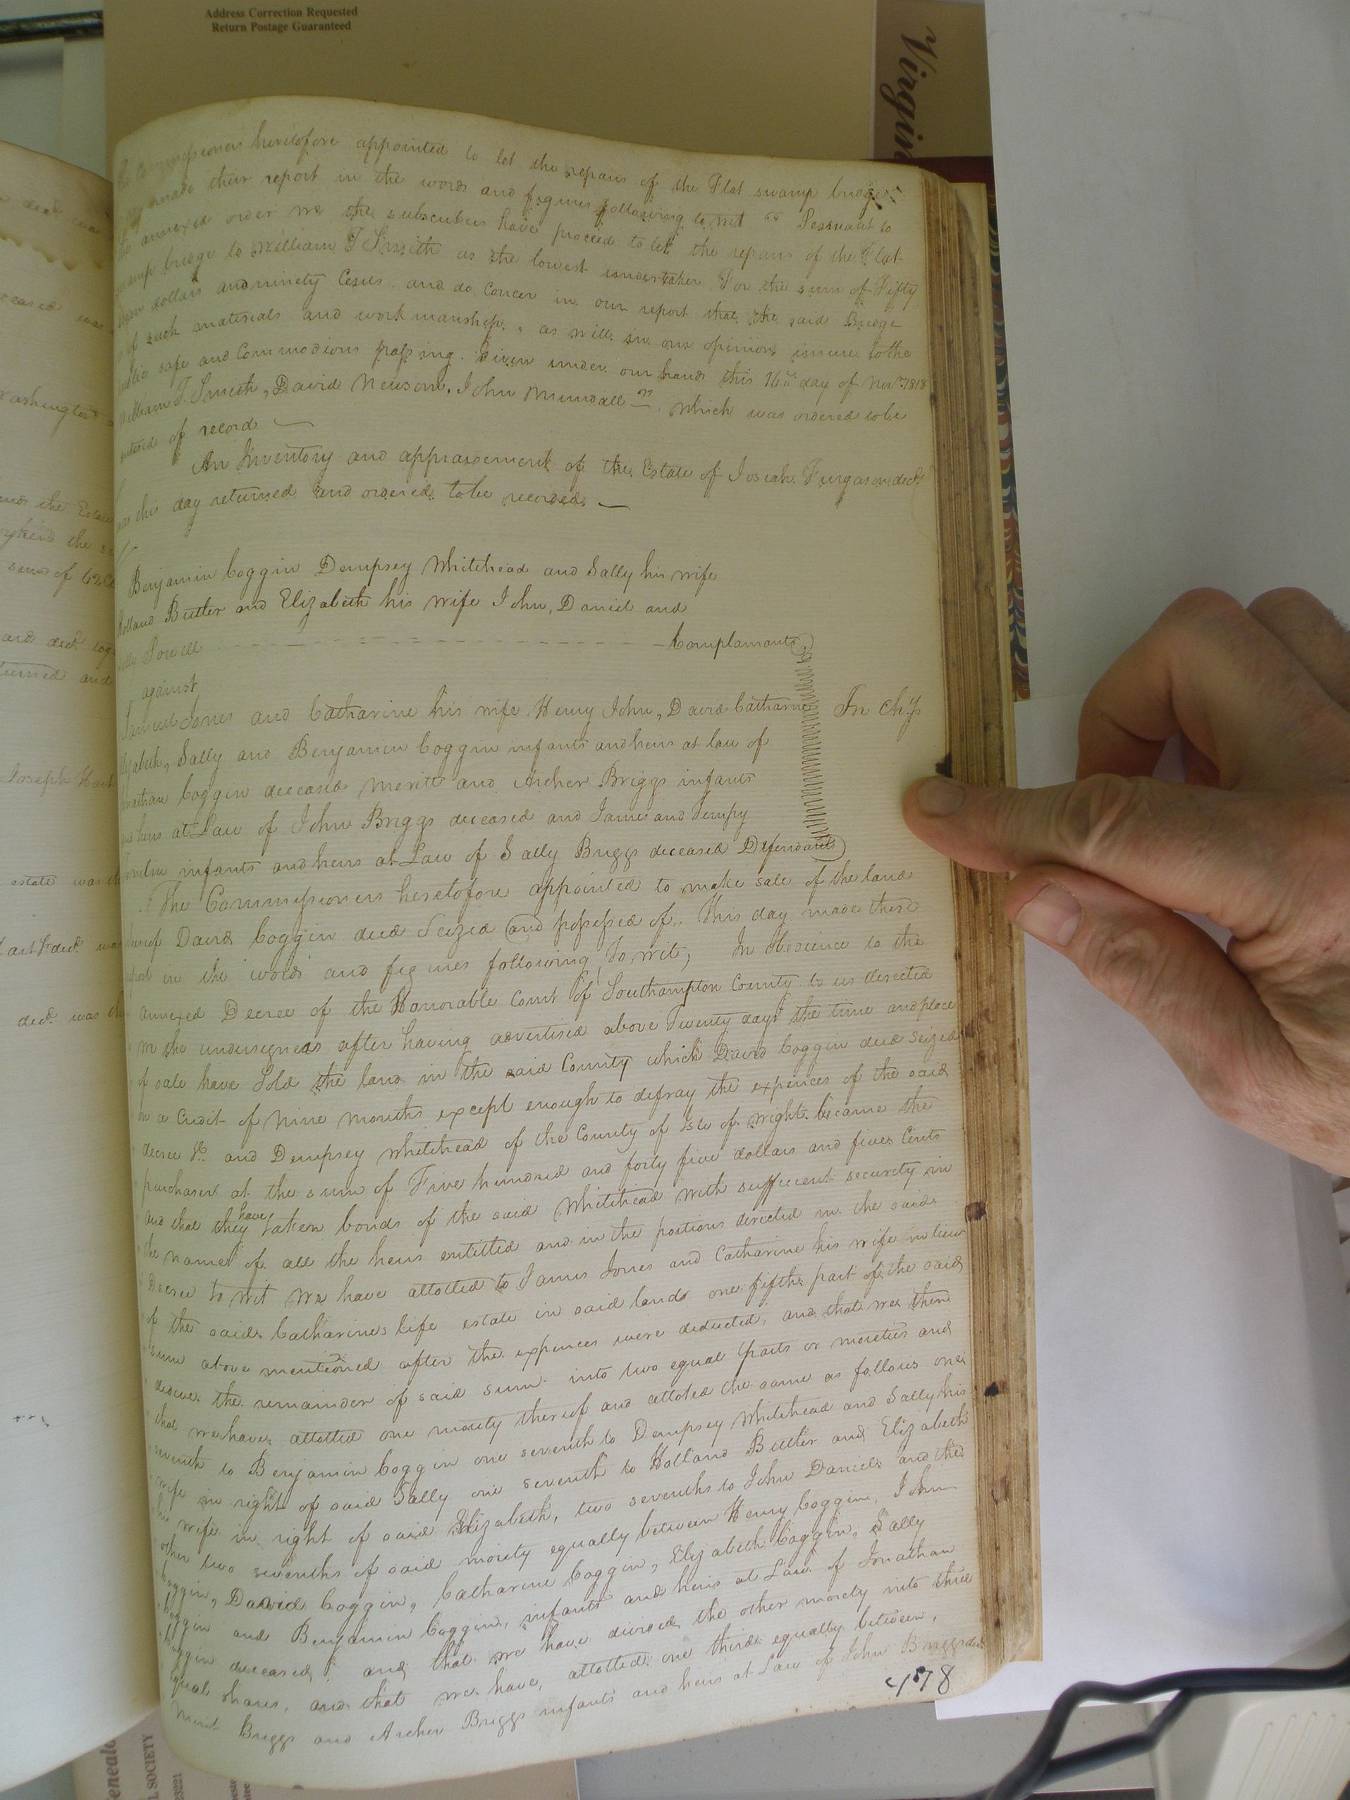 Address Correction Requested
Return Postage Guaranteed
Virgini
Commissioners heretofore appointed to let the repairs of the Flat swamp bridge
made their report in the words and figures following to wit " Persuant to
annexed order we the subscribers have proceed to let the repairs of the Flat
swamp bridge to William T Smith as the lowest undertaker For the sum of Fifty
dollars and ninety and do concer in our report that the said Bridge
of such materials and workmanship, as will in our opinion insure to the
safe and Commodious passing. Given under our hands this 16th day of Novr 1818
William T. Smith, David Newsom, John Mundall which was ordered to be
of record
An Inventory and appraisement of the Estate of Josiah Furgason decd
was this day returned and ordered to be recorded
Benjamin Coggin Dempsey Whitehead and Sally his wife
Holland Butler and Elizabeth his wife John, Daniel and
Sowell Complainants
against
James Jones and Catharine his wife Henry John, David Catharine In Chy
Elizabeth, Sally and Benjamin Coggin infants and heirs at law of
Jonathan Coggin deceased Meritt and Archer Briggs infants
heirs at Law of John Briggs deceased and James and Tempy
infants and heirs at Law of Sally Briggs deceased Defendants
The Commissioners heretofore appointed to make sale of the land
whereof David Coggin decd Seized and possessed of. This day made there
in the words and figures following, To wit; In obedience to the
annexed Decree of the Honorable Court of Southampton County to us directed
we the undersigned after having advertised above Twenty days the time and place
of sale have Sold the land in the said County which David Coggin decd Seized
on a Credit of Nine months except enough to defray the expences of the said
decree &c and Dempsey Whitehead of the County of Isle of wight became the
purchaser at the sum of Five hundred and forty five dollars and five Cents
and that they have taken bonds of the said Whitehead with sufficient security in
the names of all the heirs entitled and in the portions directed in the said
Decree to wit We have allotted to James Jones and Catharine his wife in lieu
of the said Catharines life estate in said lands one fifth part of the said
sum above mentioned after the expences were deducted, and that we then
the remainder of said sum into two equal parts or moieties and
that we have allotted one moiety thereof and alloted the same as follows one
seventh to Benjamin Coggin one seventh to Dempsey Whitehead and Sally his
wife in right of said Sally one seventh to Holland Butler and Elizabeth
his wife in right of said Elizabeth, two sevenths to John Daniel and the
other two sevenths of said moiety equally between Henry Coggin, John
Coggin, David Coggin, Catharine Coggin, Elizabeth Coggin, Sally
Coggin and Benjamin Coggin, infants and heirs at Law of Jonathan
Coggin deceased and that we have divided the other moiety into three
equal shares, and that we have allotted one third equally between,
Merit Briggs and Archer Briggs infants and heirs at Law of John Briggs decd
478
SOCIETY
23221